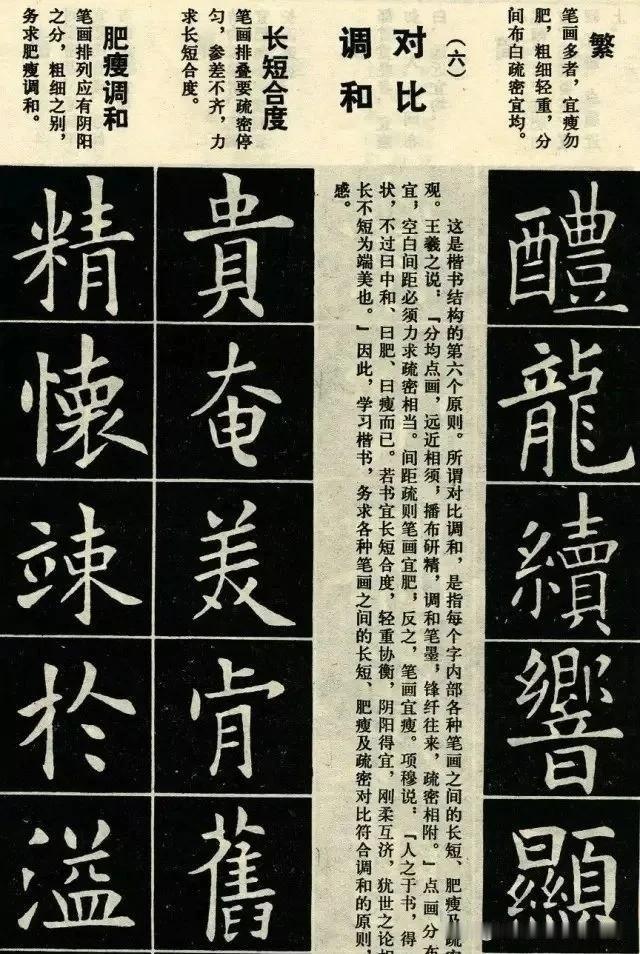 繁
笔画多者，宜瘦勿
肥，粗细轻重，分
间布白疏密宜均。
醴
龍
續
響
顯
（六）
对比
调和
这是楷书结构的第六个原则。所谓对比调和，是指每个字内部各种笔画之间的长短、肥瘦及疏密
观。王羲之说，「分均点画，远近相须，播布研精，调和笔墨，锋纤往来，疏密相附。」点画分布
宜，空白间距必须力求疏密相当。间距疏则笔画宜肥，反之，笔画宜瘦。项穆说，「人之于书，得
状，不过曰中和、曰肥、曰瘦而已。若书宜长短合度，轻重协衡，阴阳得宜，刚柔互济，犹世之论相
长不短为端美也。」因此，学习楷书，务求各种笔画之间的长短、肥瘦及疏密对比符合调和的原则，
感。
长短合度
笔画排叠要疏密停
匀，参差不齐，力
求长短合度。
貴
奄
美
肯
舊
肥瘦调和
笔画排列应有阴阳
之分，粗细之别，
务求肥瘦调和。
精
懷
竦
於
溢